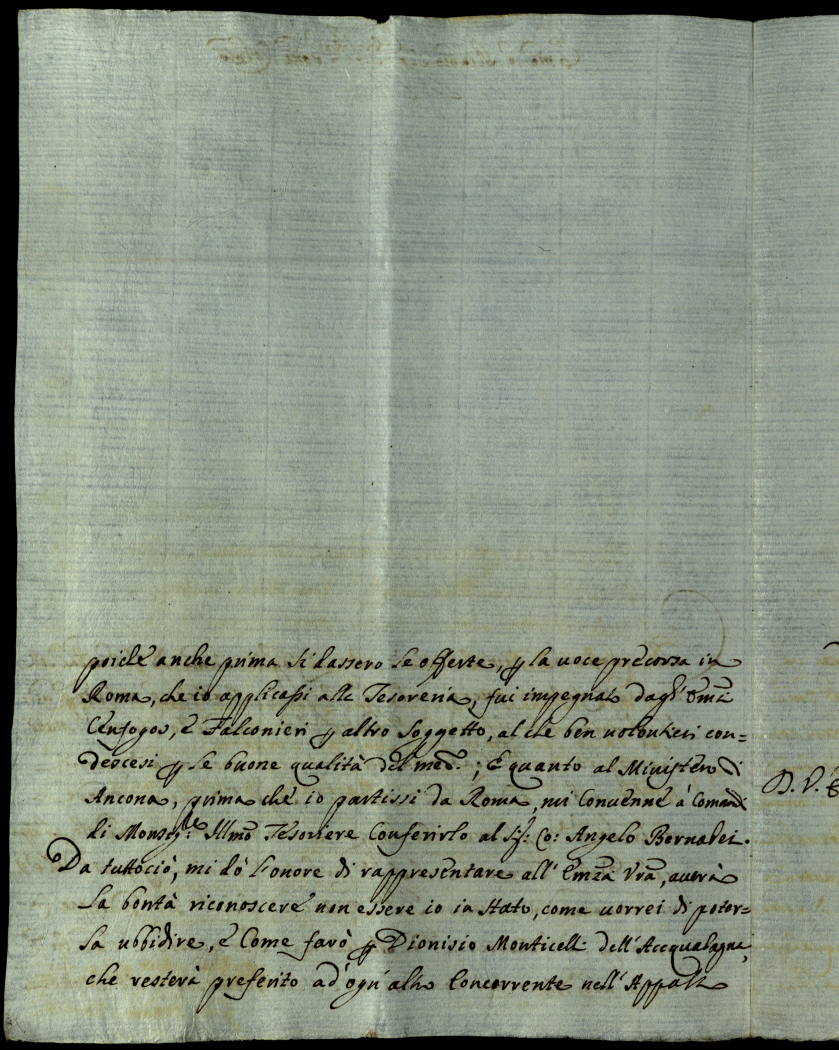 poiche anche prima si dassero le offerte, p la uoce precorsa in
Roma, che io applicassi alle Tesoreria, fui impegnato dagl' Emi
Cenfogos, è Falconieri p altro Soggetto, al che ben uolontieri con=
descesi p le buone qualità del med.º; E quanto al Ministero di
Ancona, prima che io partissi da Roma, mi Conuenne à Comandi
di Monsig.re Illmo Tesoriere Conferirlo al Sig: Co: Angelo Bernabei.
Da tuttociò, mi dò l'onore di rappresentare all' Emza Vra, auerà
la bontà riconoscere non essere io in stato, come uorrei di poter=
la ubbidire, è Come farò p Dionisio Monticelli dell'Acqualagna,
che resterà preferito ad'ogn'altro Concorrente nell'Appalto
D. V. E